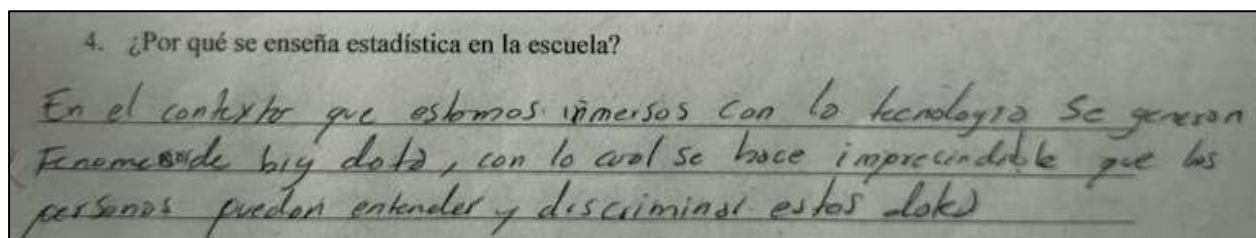 4. ¿Por qué se enseña estadística en la escuela?
En el contexto que estamos inmersos con la tecnología se generan
Fenomenos de big data, con lo cual se hace imprecindible que las
personas puedan entender y discriminar estos datos